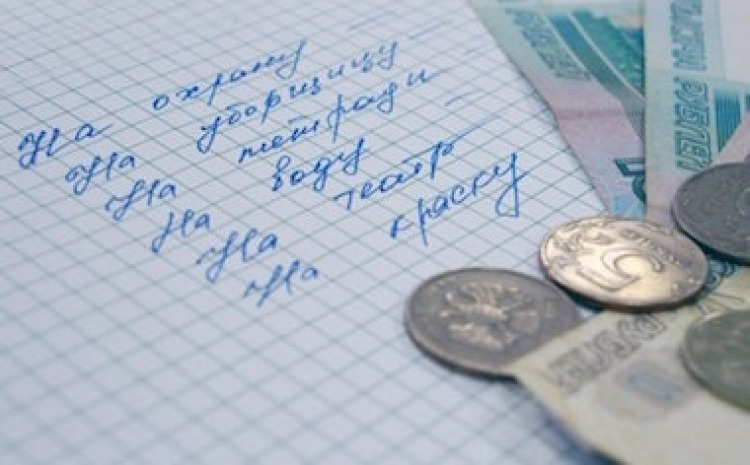 На охрану –
На уборщицу –
На тетради
На воду –
На театр
На краску
РУБЛЕЙ
5
РУБЛЕ